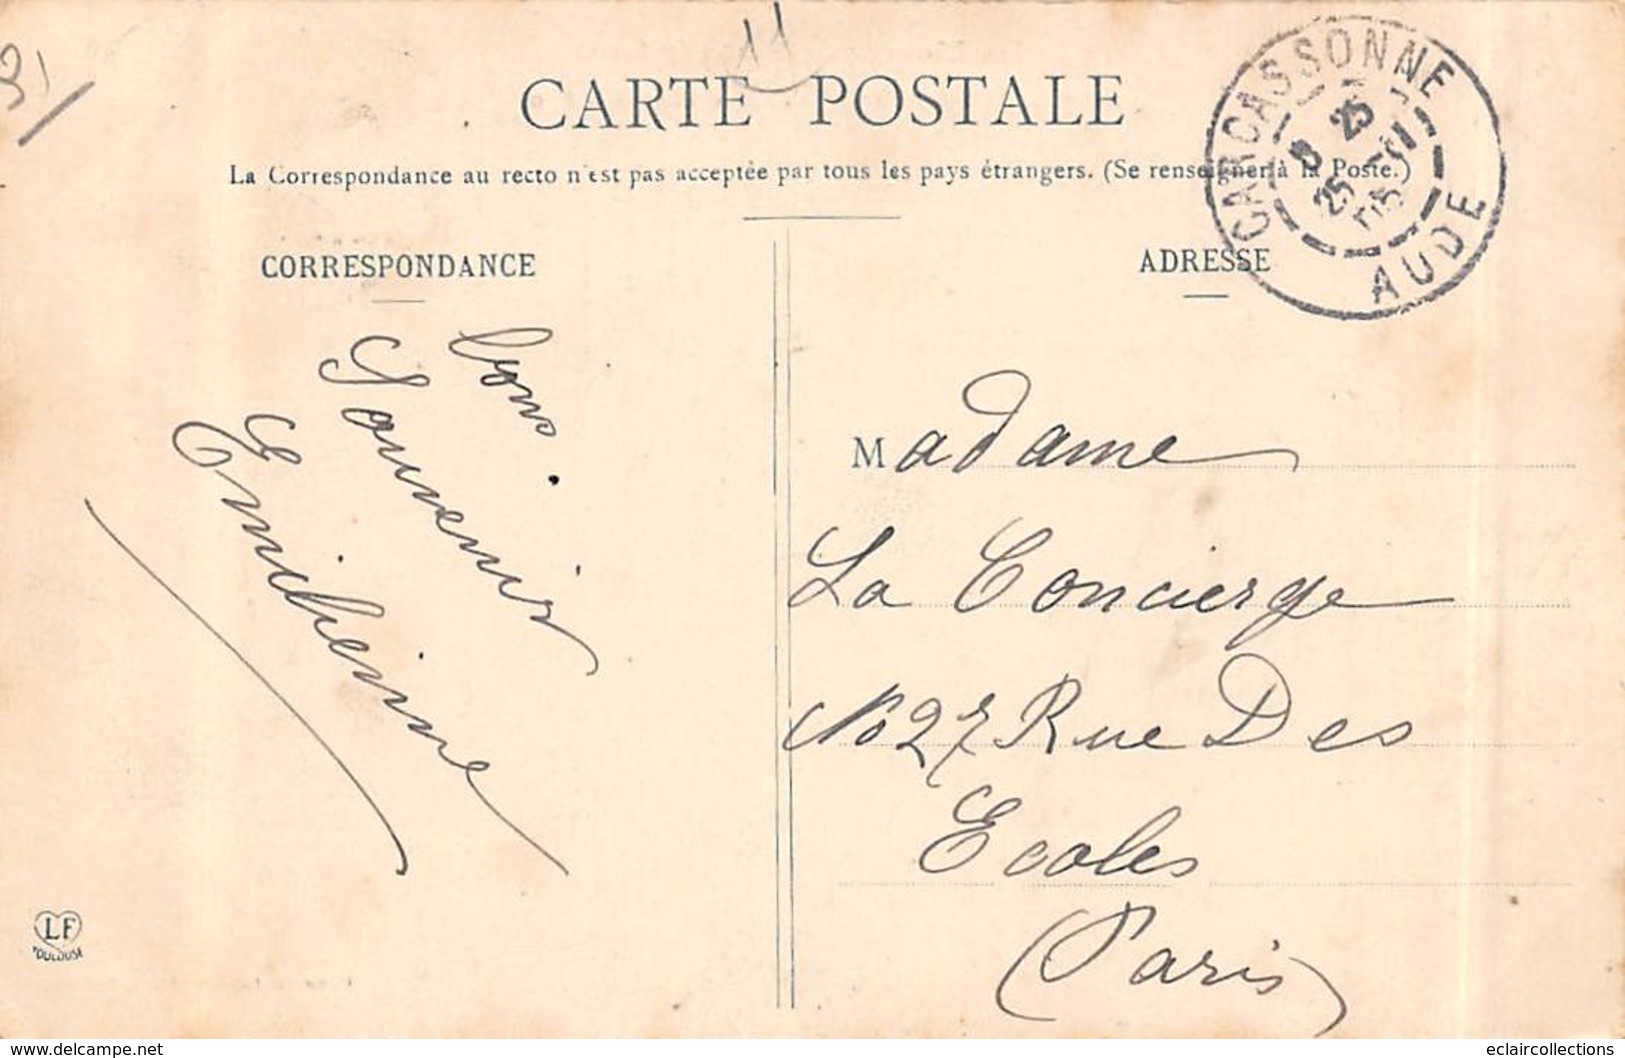 11
CARTE POSTALE
La Correspondance au recto n'est pas acceptée par tous les pays étrangers. (Se renseigner à la Poste.)
CARCASSONNE
25
25
AUDE
CORRESPONDANCE
bons
Souvenirs
Emilienne
LF
TOULOUSE
ADRESSE
Madame
La Concierge
No 27 Rue Des
Ecoles
(Paris)
www.delcampe.net
eclaircollections